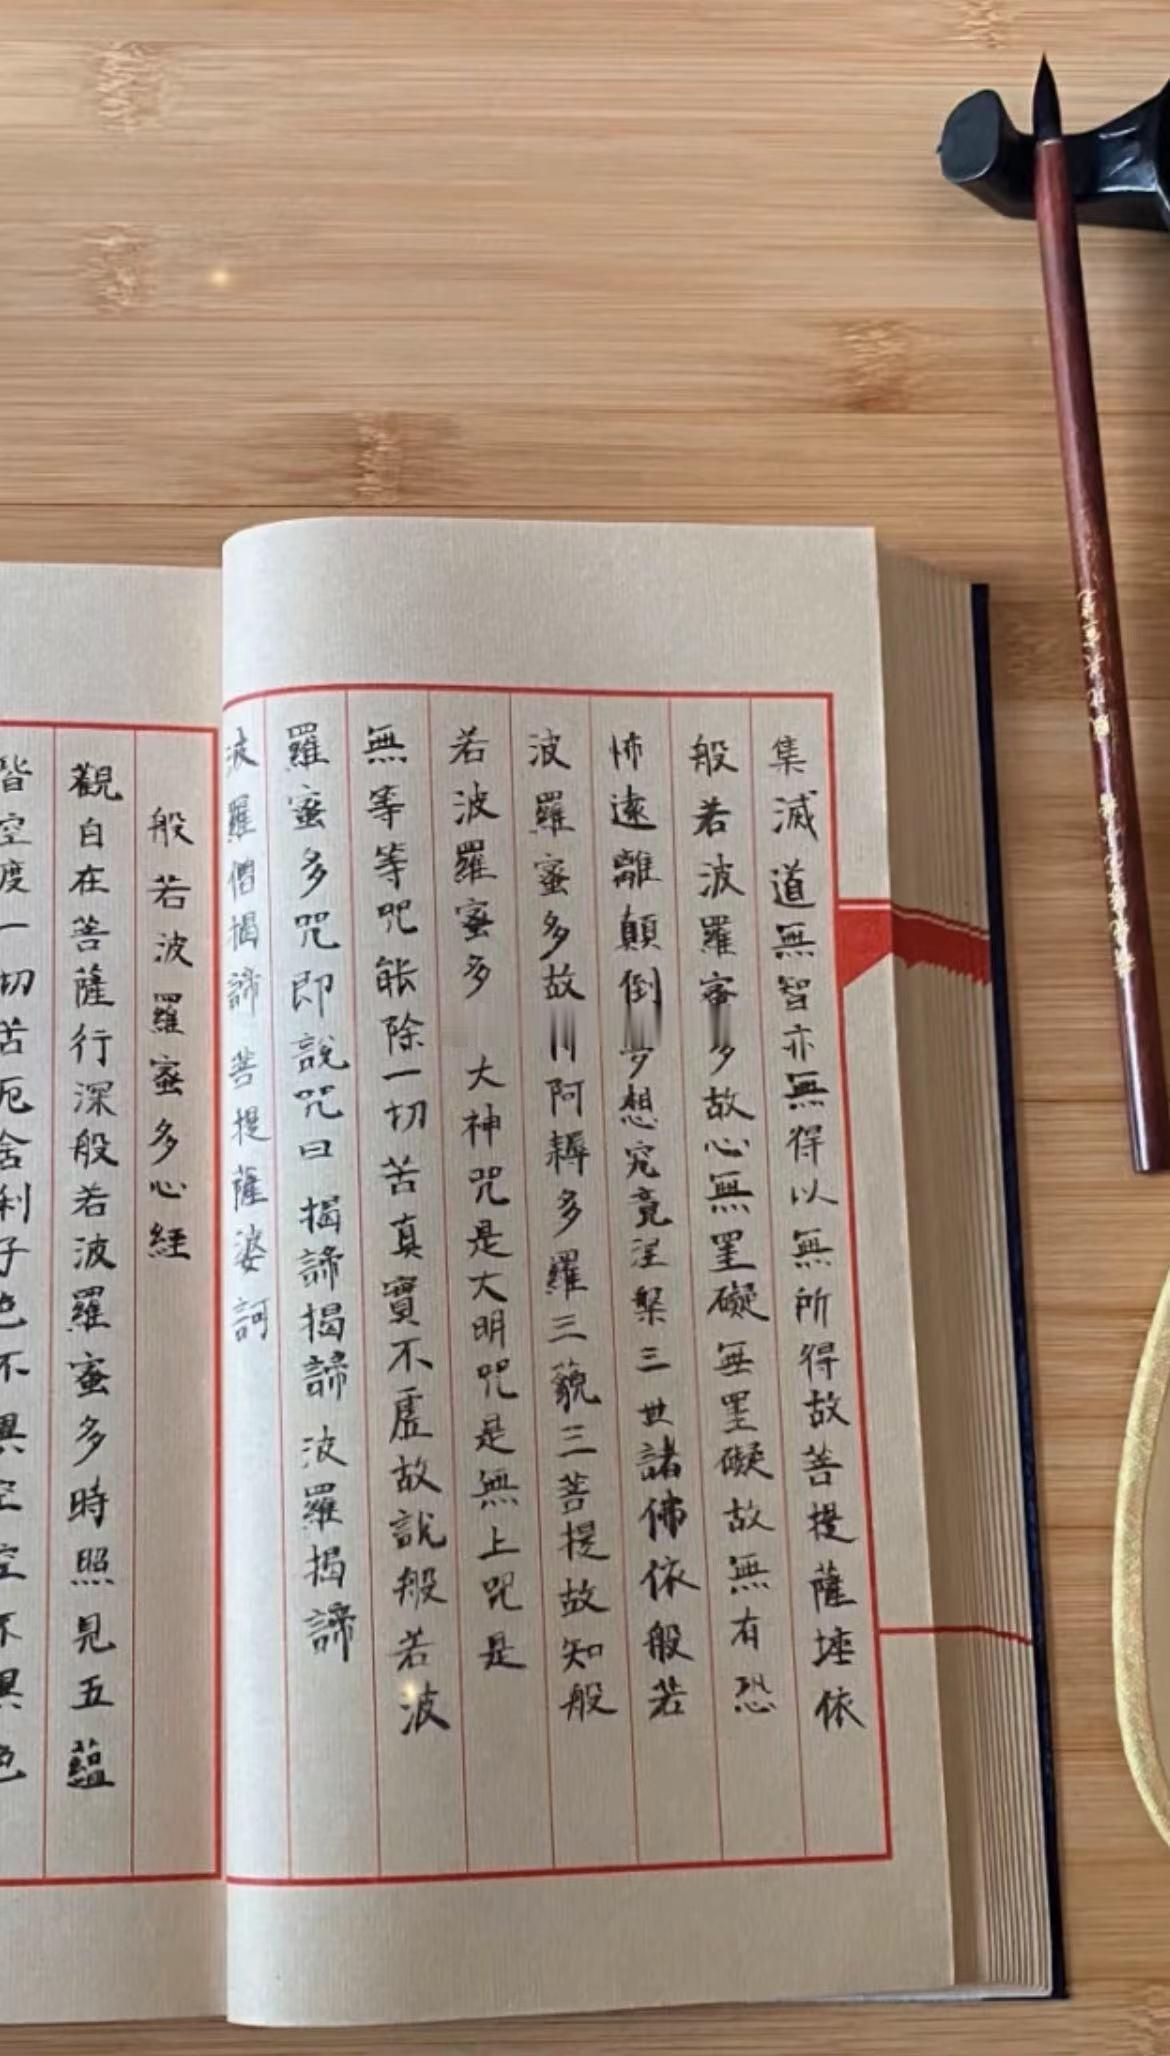 集滅道無智亦無得以無所得故菩提薩埵依
般若波羅蜜多故心無罣礙無罣礙故無有恐
怖遠離顛倒想究竟涅槃三世諸佛依般若
波羅蜜多故阿耨多羅三藐三菩提故知般
若波羅蜜多 大神咒是大明咒是無上咒是
無等等咒能除一切苦真實不虛故說般若波
羅蜜多咒即說咒曰 揭諦揭諦 波羅揭諦
波羅僧揭諦 菩提薩婆訶
般若波羅蜜多心經
觀自在菩薩行深般若波羅蜜多時照見五蘊
皆空度一切苦厄舍利子色不異空空不異色